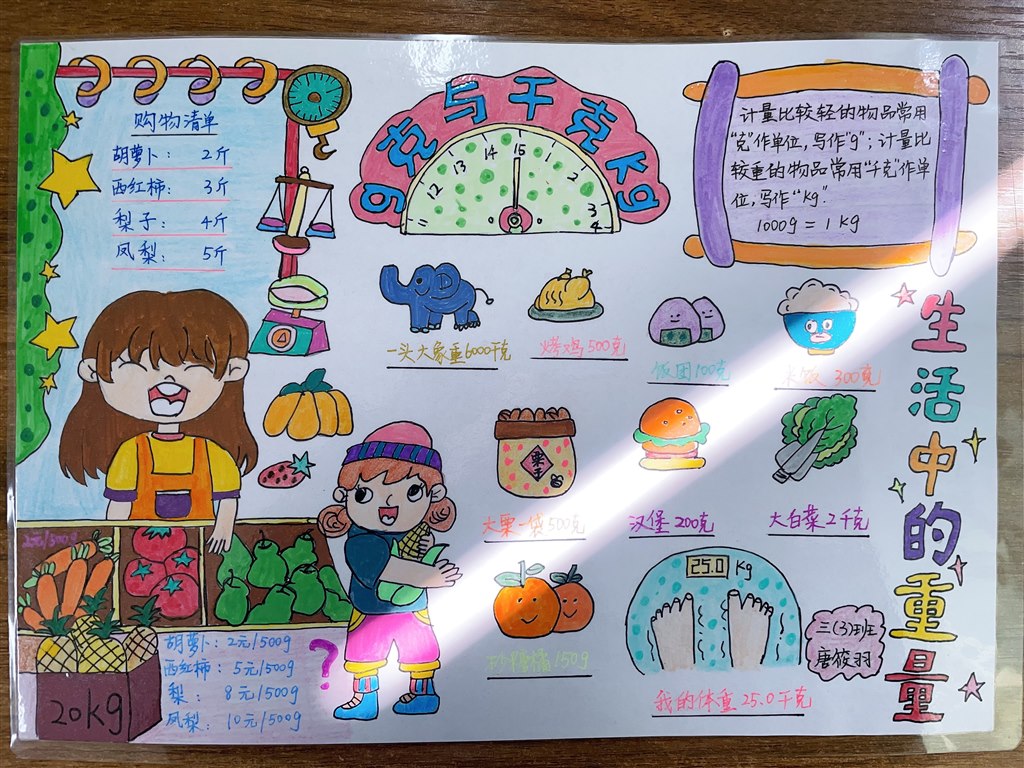 购物清单
胡萝卜： 2斤
西红柿： 3斤
梨子： 4斤
凤梨： 5斤
g克与千克kg
12 13 14 15 1 2 3 4
计量比较轻的物品常用
“克”作单位，写作“g”；计量比
较重的物品常用“千克”作单
位，写作“kg”.
1000g = 1 kg
生活中的重量
一头大象重6000千克
烤鸡500克
饭团100克
米饭 300克
栗子
大栗一袋500克
汉堡200克
大白菜2千克
砂糖橘150g
25.0 kg
我的体重25.0千克
三(3)班
唐筱羽
2元/500g
胡萝卜：2元/500g
西红柿：5元/500g
梨：8元/500g
凤梨：10元/500g
?
20kg